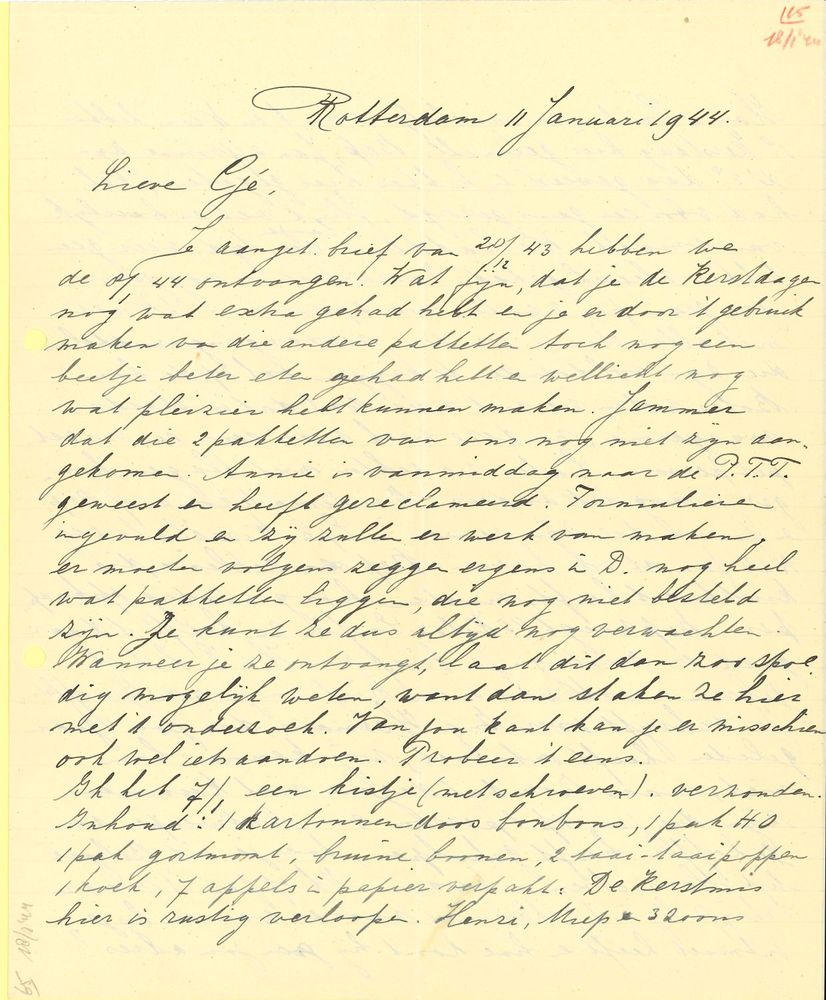 115
18/1 '44
Rotterdam 11 Januari 1944.
Lieve Cjé,
Je aanget. brief van 20/12 43 hebben we
de 8/1 44 ontvangen. Wat fijn, dat je de Kerstdagen
nog wat extra gehad hebt en je er door 't gebruik
maken van die andere pakketten toch nog een
beetje beter eten gehad hebt en wellicht nog
wat pleizier hebt kunnen maken. Jammer
dat die 2 pakketten van ons nog niet zijn aan-
gekomen. Annie is vanmiddag naar de P.T.T.
geweest en heeft gereclameerd. Formulieren
ingevuld en zij zullen er werk van maken,
er moeten volgens zeggen ergens in D. nog heel
wat pakketten liggen, die nog niet besteld
zijn. Je kunt ze dus altijd nog verwachten.
Wanneer je ze ontvangt, laat dit dan zoo spoe-
dig mogelijk weten, want dan staken ze hier
met 't onderzoek. Van jou kant kan je er misschien
ook wel iets aandoen. Probeer 't eens.
Ik heb 7/1 een kistje (met schroeven). verzonden.
Inhoud: 1 kartonnen doos bonbons, 1 pak HO
1 pak gortmout, bruine boonen, 2 taai-taaipoppen
1 koek, 7 appels in papier verpakt. De Kerstmis
hier is rustig verloopen. Henri, Miep en 3 zoons
18/1 '44
59